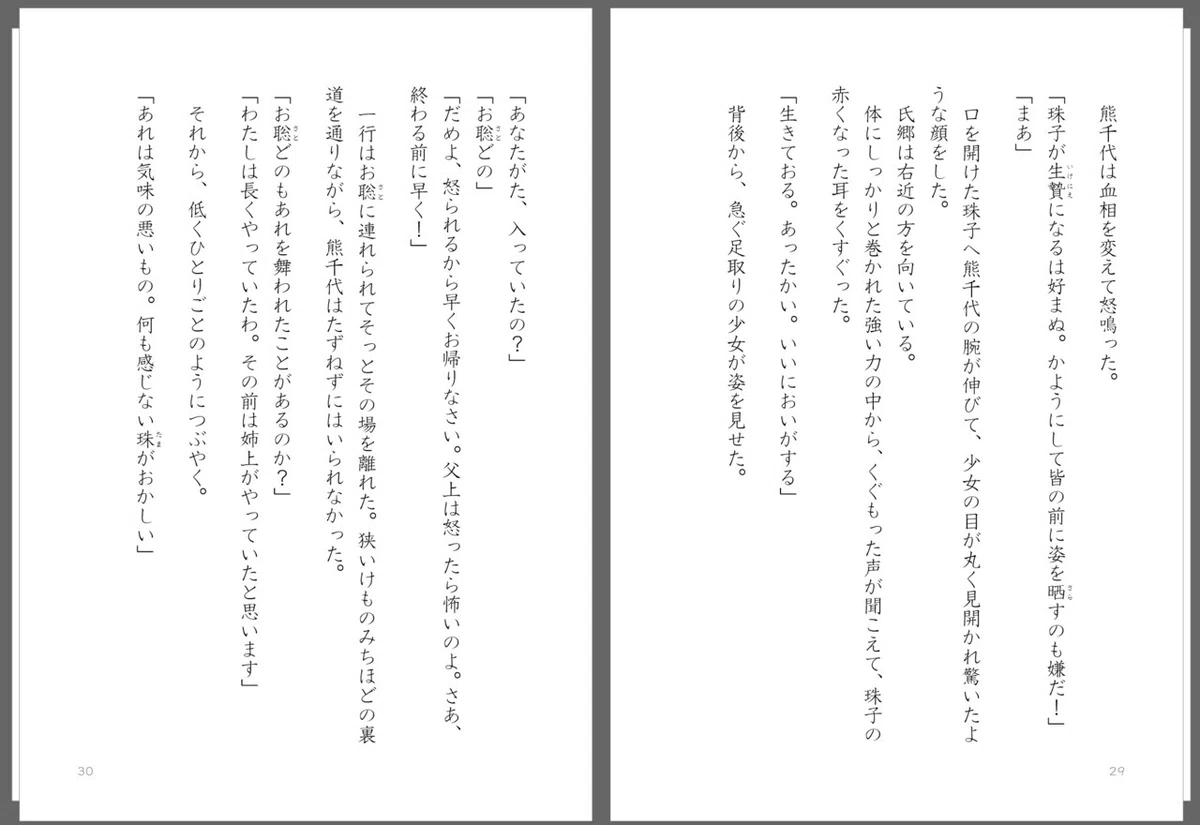 熊千代は血相を変えて怒鳴った。
「珠子が生贄になるは好まぬ。かようにして皆の前に姿を晒すのも嫌だ！」
「まあ」
口を開けた珠子へ熊千代の腕が伸びて、少女の目が丸く見開かれ驚いたよ
うな顔をした。
氏郷は右近の方を向いている。
体にしっかりと巻かれた強い力の中から、くぐもった声が聞こえて、珠子の
赤くなった耳をくすぐった。
「生きておる。あったかい。いいにおいがする」
背後から、急ぐ足取りの少女が姿を見せた。
29
「あなたがた、入っていたの？」
「お聡どの」
「だめよ、怒られるから早くお帰りなさい。父上は怒ったら怖いのよ。さあ、
終わる前に早く！」
一行はお聡に連れられてそっとその場を離れた。狭いけものみちほどの裏
道を通りながら、熊千代はたずねずにはいられなかった。
「お聡どのもあれを舞われたことがあるのか？」
「わたしは長くやっていたわ。その前は姉上がやっていたと思います」
それから、低くひとりごとのようにつぶやく。
「あれは気味の悪いもの。何も感じない珠がおかしい」
30